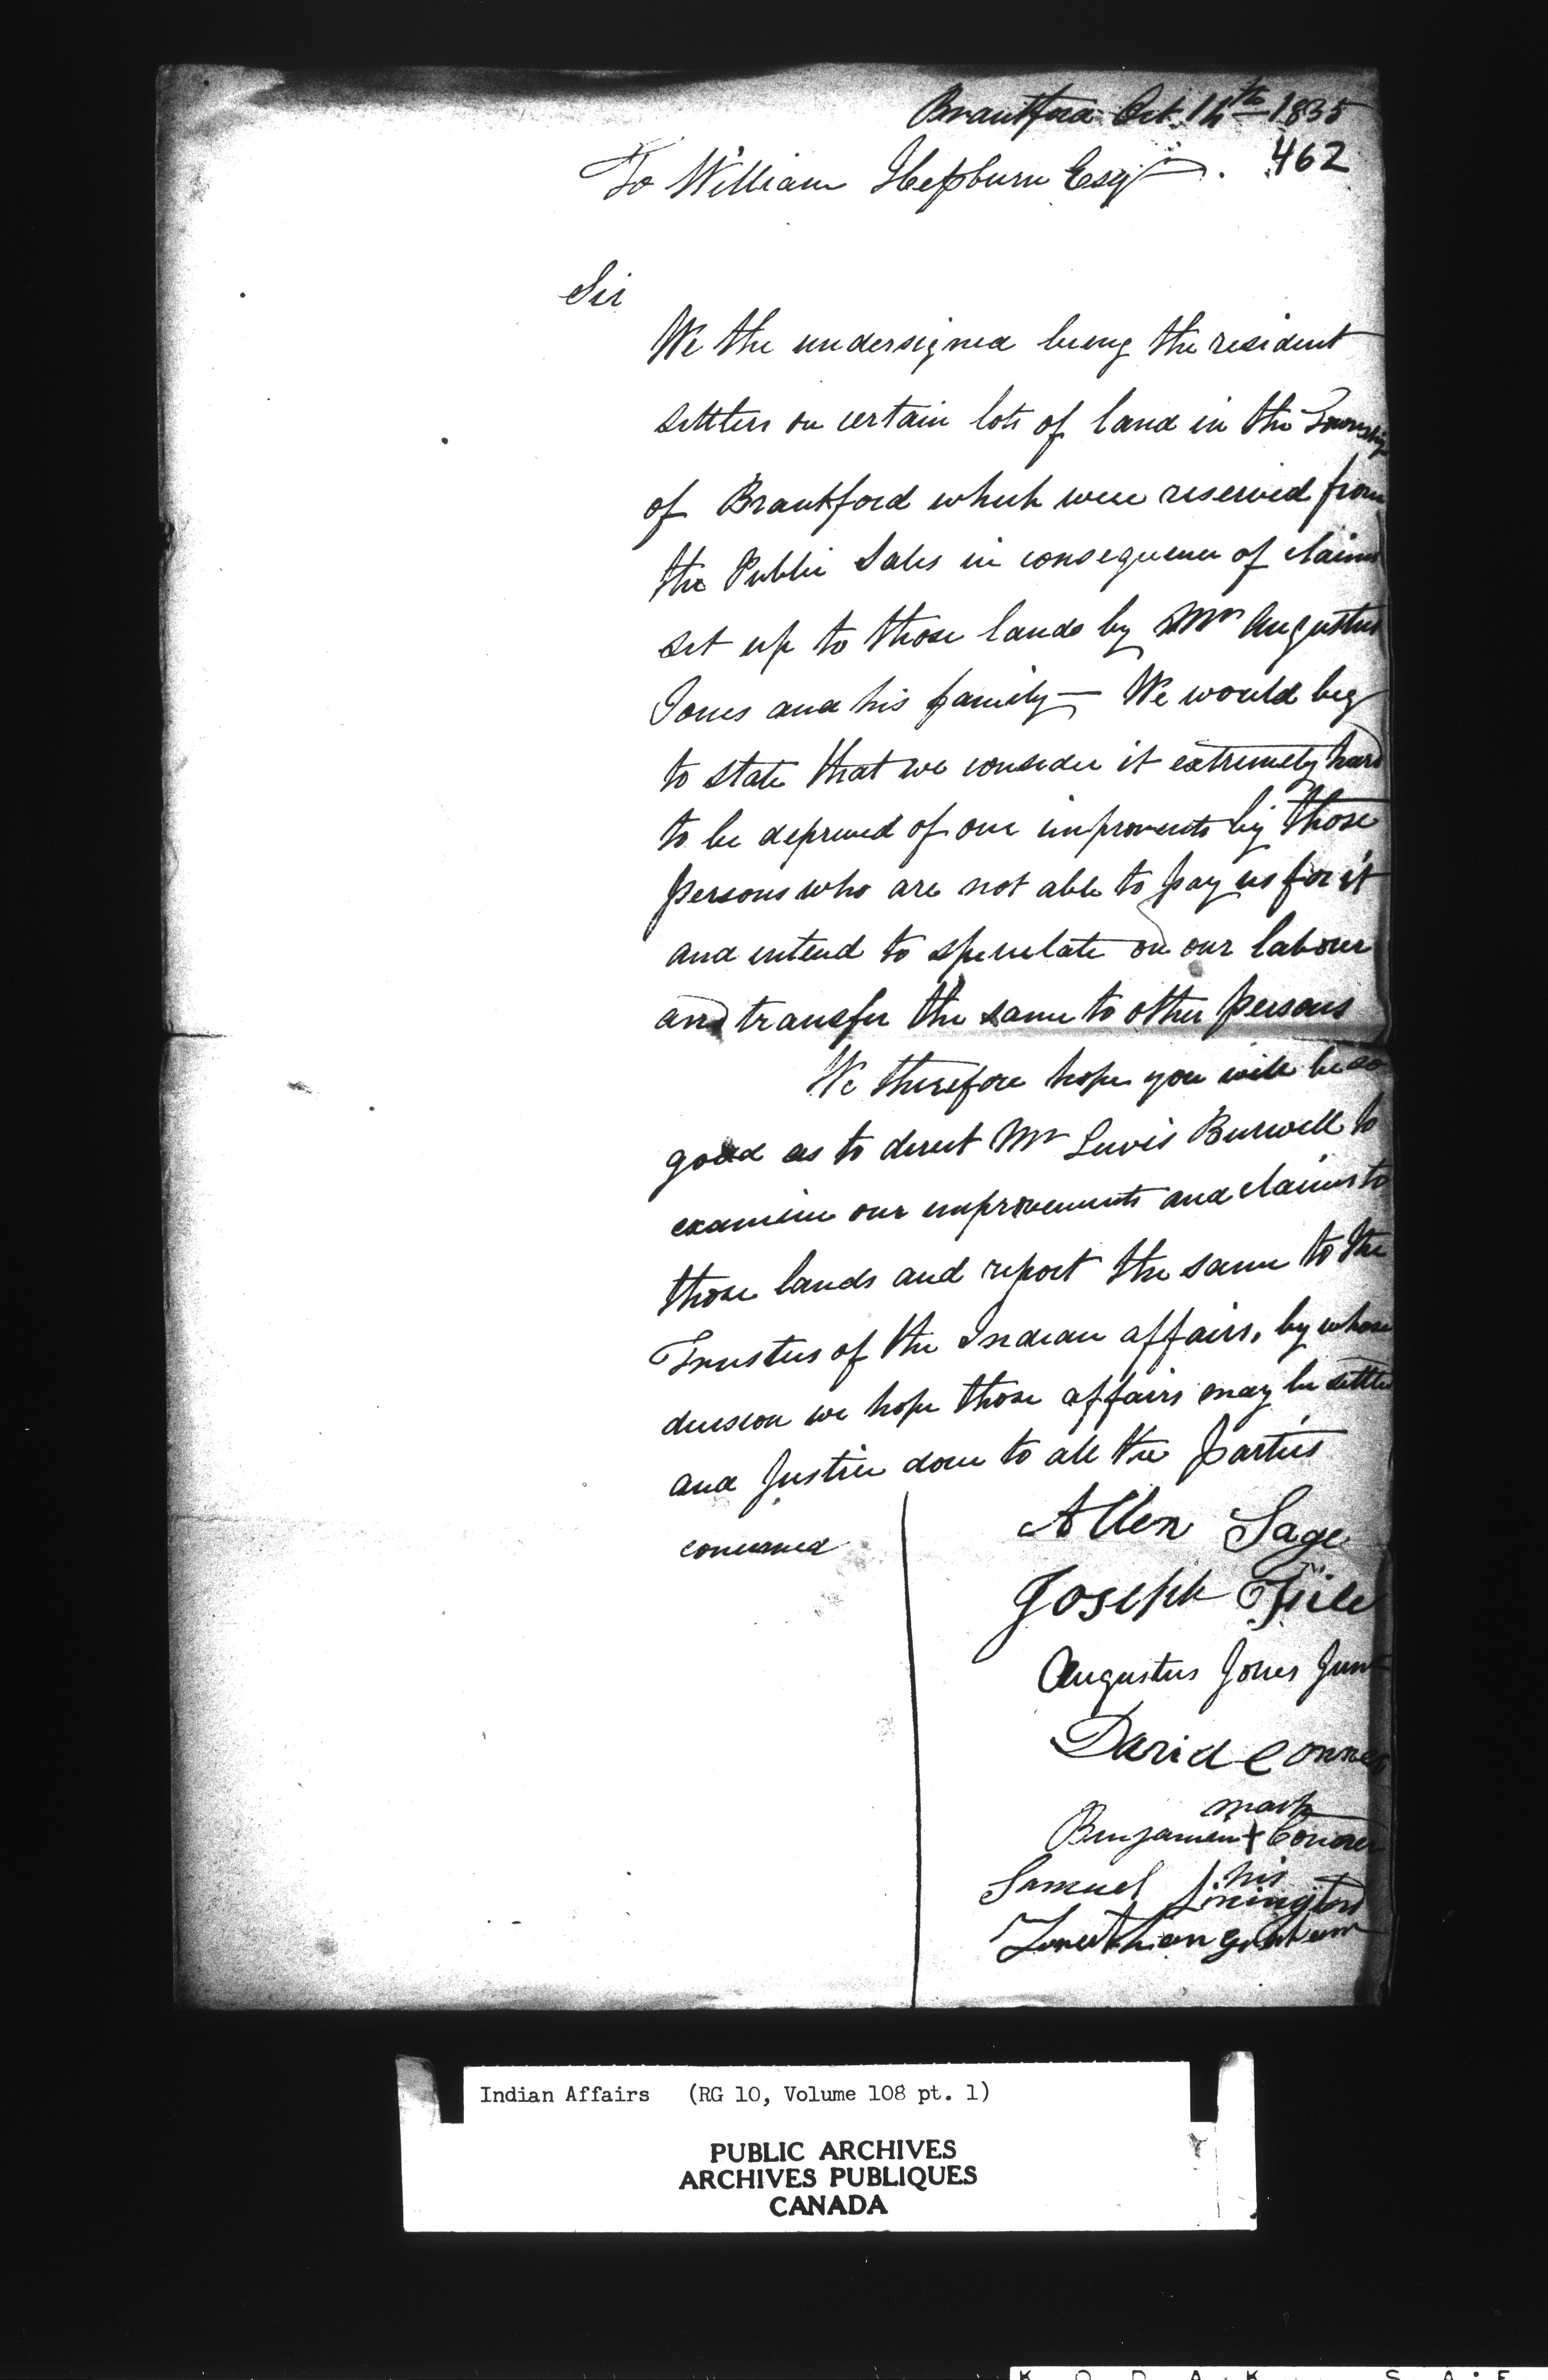 Brantford Oct. 14th 1835
462
To William Hepburn Esqr.
Sir
We the undersigned being the resident
settlers on certain lots of land in the Township
of Brantford which were reserved from
the Public Sales in consequence of claims
set up to those lands by Mr Augustus
Jones and his family — We would beg
to state that we consider it extremely hard
to be deprived of our improvents by those
persons who are not able to pay us for it
and intend to speculate on our labour
and transfer the same to other persons
We therefore hope you will be so
good as to direct Mr Lewis Burwell to
examine our improvements and claims to
those lands and report the same to the
Trustees of the Indian affairs, by whose
decision we hope those affairs may be settled
and Justice done to all the parties
concerned
Allen Sage
Joseph
Augustus Jones Junr
David
mark
Benjamin +
his
Samuel

Indian Affairs (RG 10, Volume 108 pt. 1)
PUBLIC ARCHIVES
ARCHIVES PUBLIQUES
CANADA
K O D A K S A F E